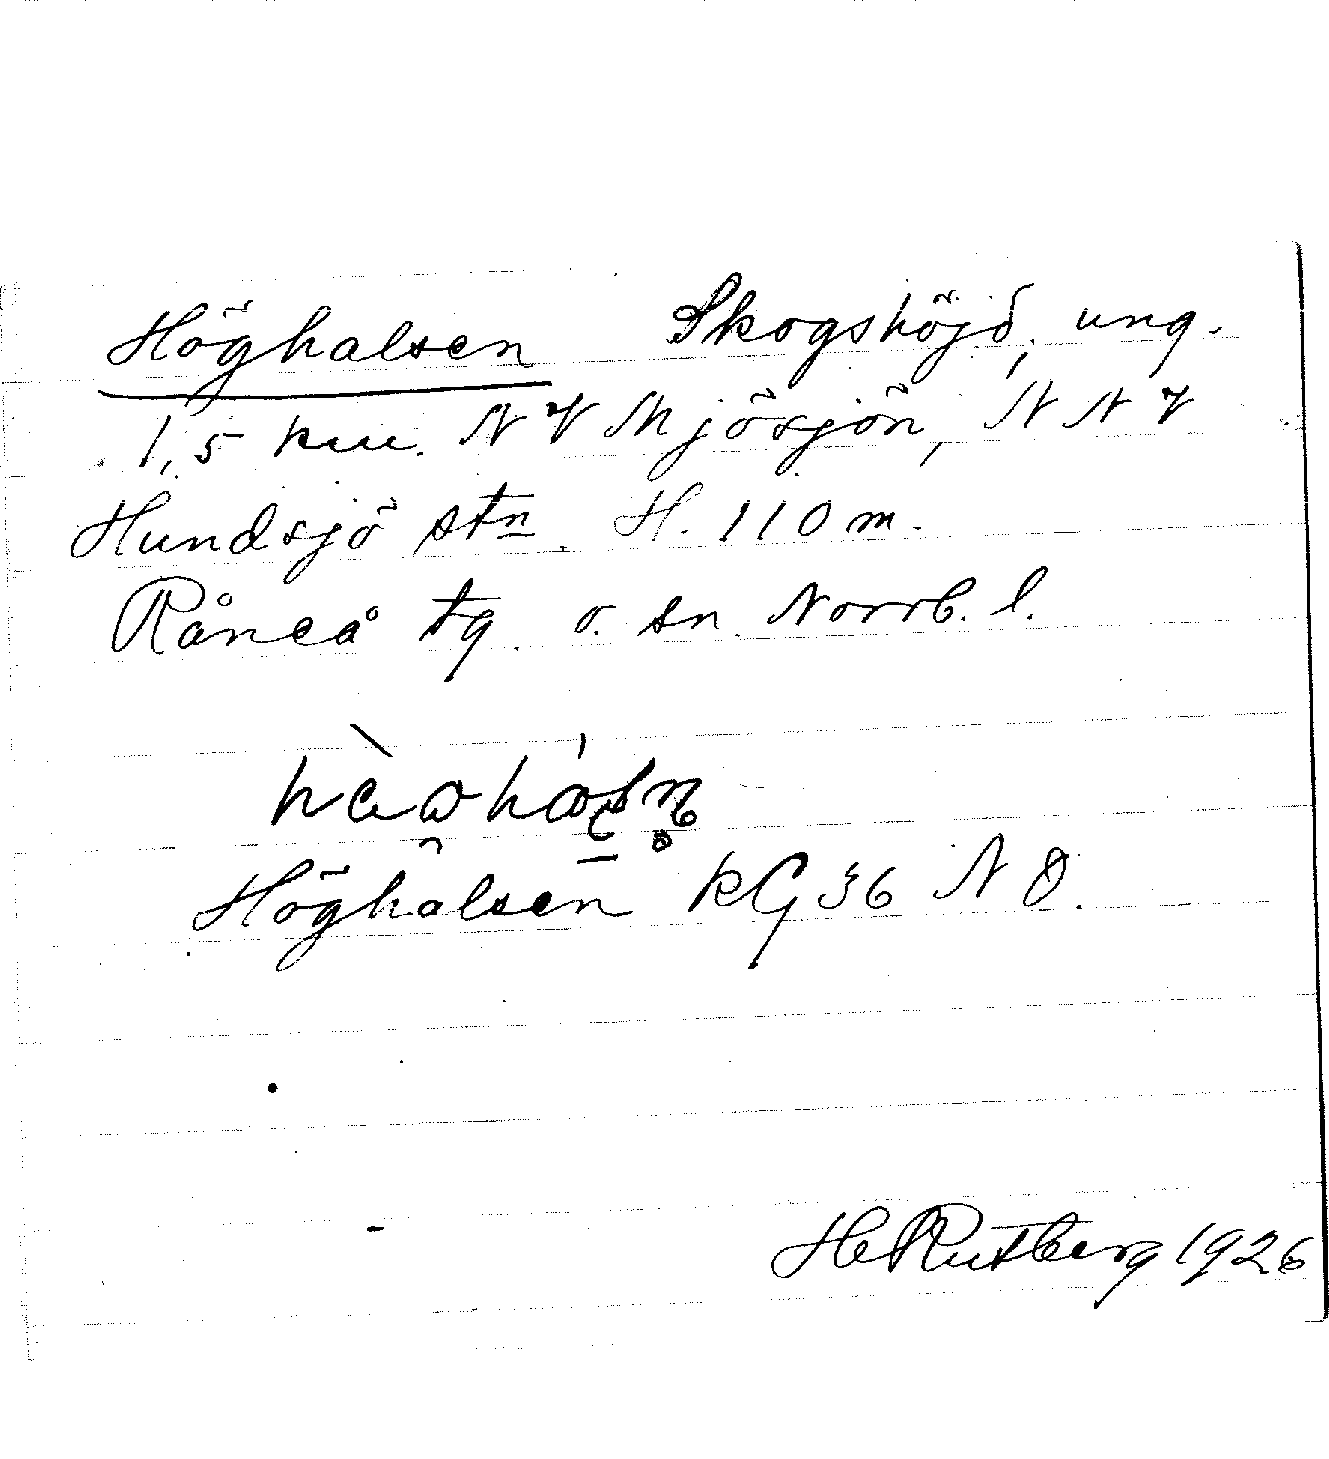 Höghalsen Skogshöjd, ung.
1,5 km. NV Mjösjön, NNV
Hundsjö stn H. 110 m.
Råneå tg o. sn Norrb. l.
Höghalsen kG 36 NO.
H Rutberg 1926